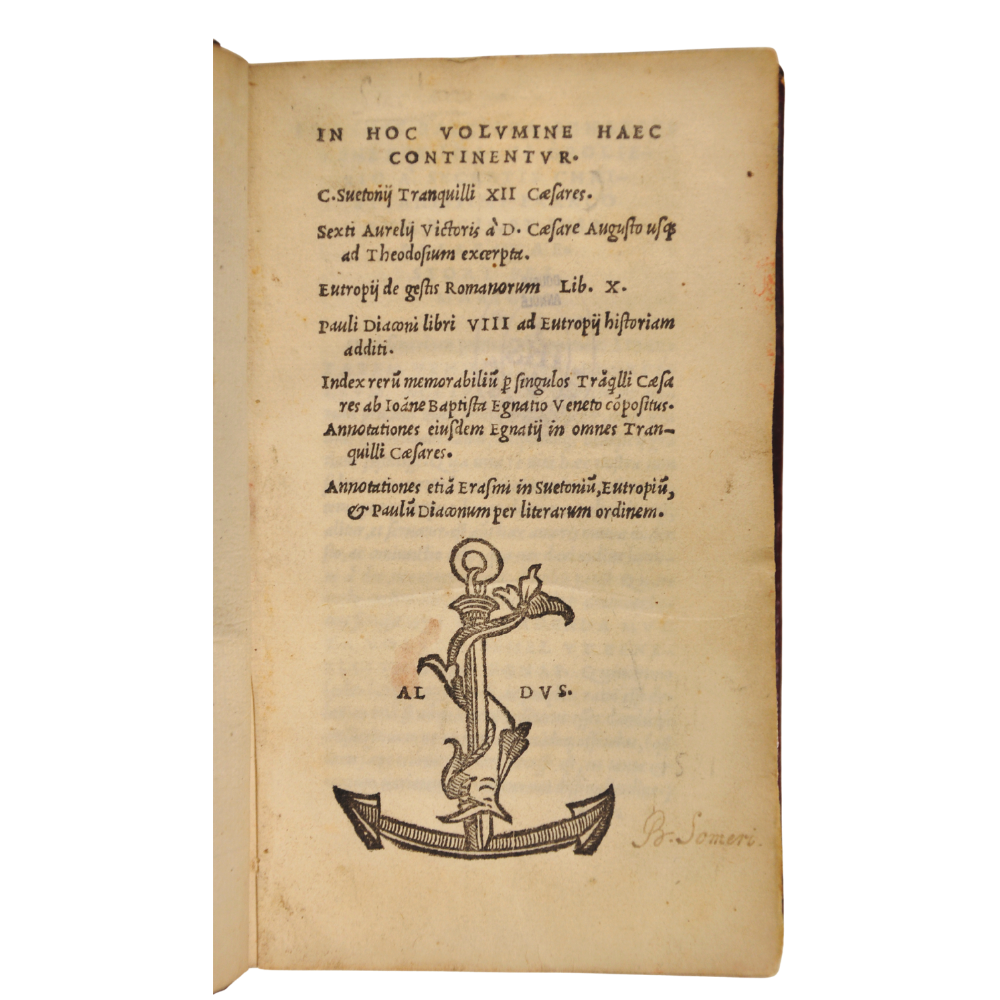 IN HOC VOLVMINE HAEC
CONTINENTVR.
C. Suetonij Tranquilli XII Cæsares.
Sexti Aurelij Victoris à D. Cæsare Augusto usq;
ad Theodosium excerpta.
Eutropij de gestis Romanorum Lib. X.
Pauli Diaconi libri VIII ad Eutropij historiam
additi.
Index rerū memorabiliū ꝑ singulos Trāq̇lli Cæsa
res ab Ioāne Baptista Egnatio Veneto cōpositus.
Annotationes eiusdem Egnatij in omnes Tran-
quilli Cæsares.
Annotationes etiā Erasmi in Suetoniū, Eutropiū,
& Paulū Diaconum per literarum ordinem.
AL DVS.
Br. Someri.